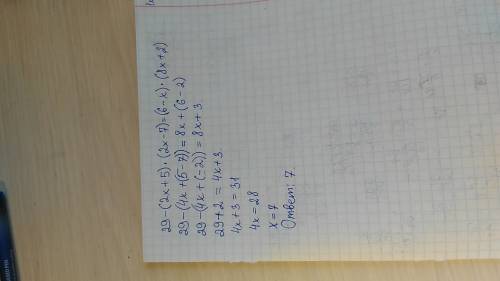 29-(2x+5)·(2x-7)=(6-x)·(8x+2)
29-(4x+(5-7))=8x+(6-2)
29-(4x+(-2))=8x+3
29+2=4x+3
4x+3=31
4x=28
x=7
Ответ: 7.